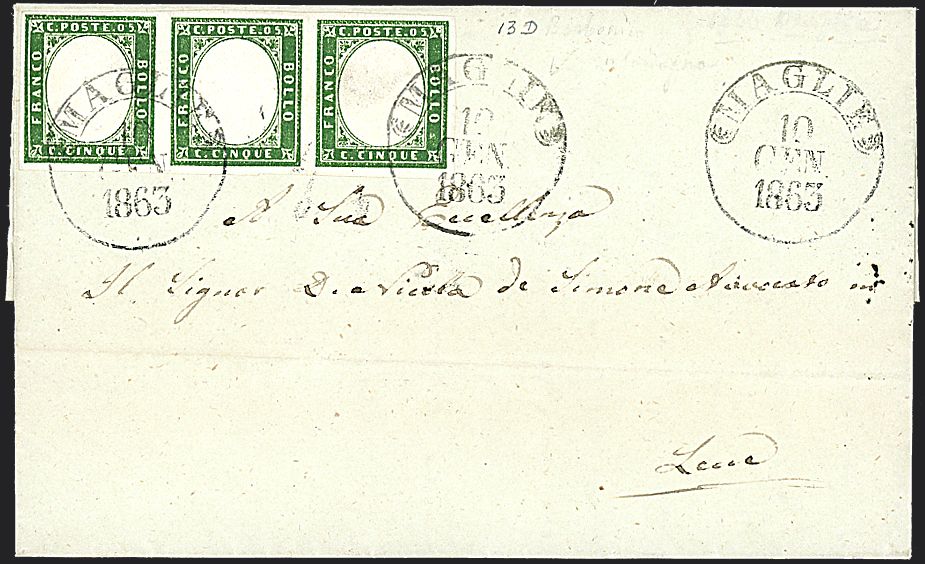 C. POSTE. 05
FRANCO
BOLLO
C. CINQUE
C. POSTE. 05
FRANCO
BOLLO
C. CINQUE
C. POSTE. 05
FRANCO
BOLLO
C. CINQUE
13 D
MAGLIE
GEN.
1863
MAGLIE
10
GEN.
1863
MAGLIE
10
GEN.
1863
A Sua Eccellenza
Il Signor D. Nicola de Simone Avvocato in
Lecce